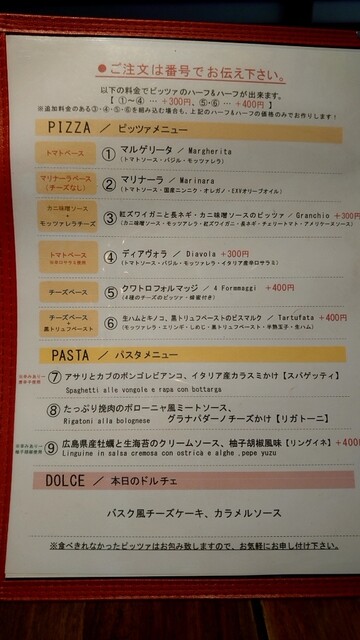 ●ご注文は番号でお伝え下さい。
以下の料金でピッツァのハーフ&ハーフが出来ます。
【 ①～④ … +300円、⑤・⑥ … +400円 】
※追加料金のある③・④・⑤・⑥を組み込む場合も、上記のハーフ&ハーフの価格のみでお作りします！
PIZZA / ピッツァメニュー
トマトベース ① マルゲリータ / Margherita
(トマトソース・バジル・モッツァレラ)
マリナーラベース
(チーズなし) ② マリナーラ / Marinara
(トマトソース・国産ニンニク・オレガノ・EXVオリーブオイル)
カニ味噌ソース
+
モッツァレラチーズ ③ 紅ズワイガニと長ネギ・カニ味噌ソースのピッツァ / Granchio +300円
(カニ味噌ソース・モッツァレラ・紅ズワイガニ・長ネギ・チェリートマト・アメリケーヌソース)
トマトベース
④ ディアヴォラ / Diavola +300円
(トマトソース・バジル・モッツァレラ・イタリア産辛口サラミ)
チーズベース ⑤ クワトロフォルマッジ / 4 Formmaggi +400円
(4種のチーズのピッツァ・蜂蜜付き)
チーズベース
+
黒トリュフペースト ⑥ 生ハムとキノコ、黒トリュフペーストのビスマルク / Tartufata +400円
(モッツァレラ・エリンギ・しめじ・黒トリュフペースト・半熟玉子・生ハム)
PASTA / パスタメニュー
⑦ アサリとカブのボンゴレビアンコ、イタリア産カラスミかけ【スパゲッティ】
Spaghetti alle vongole e rapa con bottarga
⑧ たっぷり挽肉のボローニャ風ミートソース、
Rigatoni alla bolognese グラナパダーノチーズかけ【リガトーニ】
⑨ 広島県産牡蠣と生海苔のクリームソース、柚子胡椒風味【リングイネ】 +400円
Linguine in salsa cremosa con ostrica e alghe ,pepe yuzu
DOLCE / 本日のドルチェ
バスク風チーズケーキ、カラメルソース
※食べきれなかったピッツァはお包み致しますので、お気軽にお申し付け下さい。